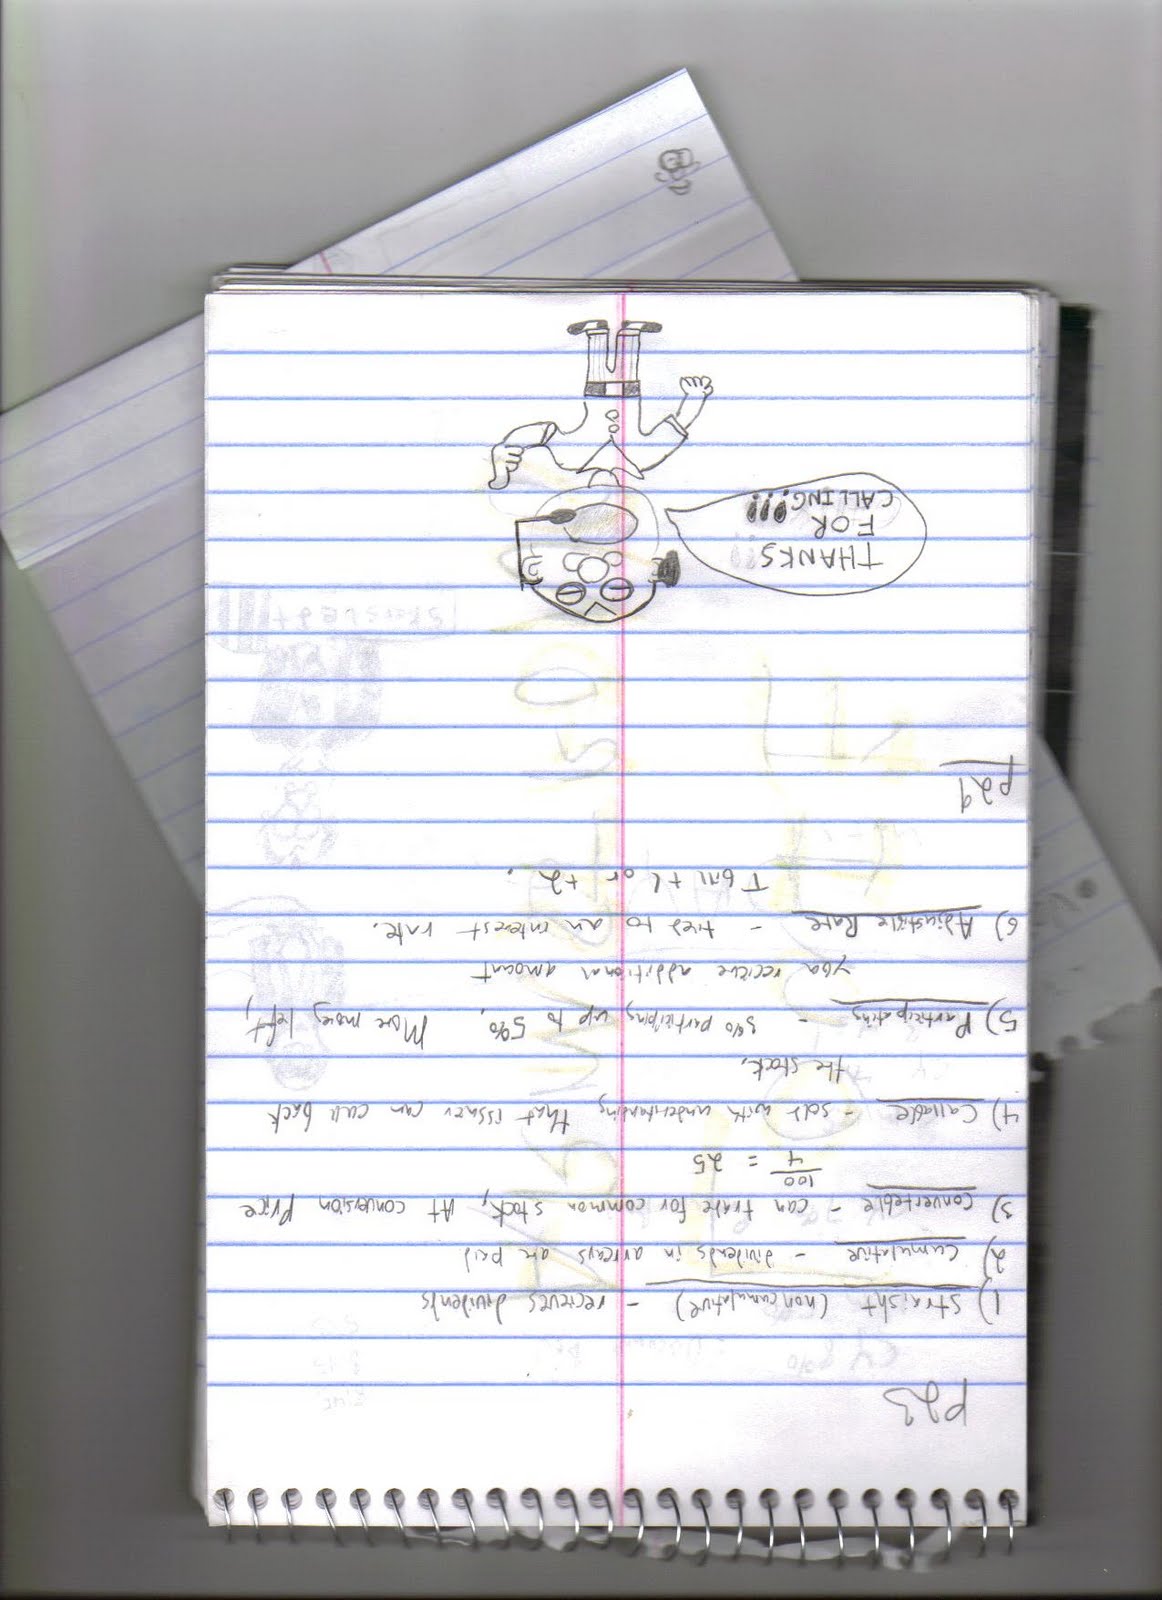 P23
1) Straight (noncumulative) - recieves dividends
2) Cumulative - dividends in arreays are paid
3) Converteble - can trade for common stock, At conversion Price
100
4 = 25
4) Callable - sold with understanding that issuer can call back
the stock.
5) Participating - 3% participing up to 5%, More money left,
you recieve additional amount
6) Adjustible Rate - tied to an interest rate.
T bill +1 or +2.
p29
THANKS
FOR
CALLING!!!